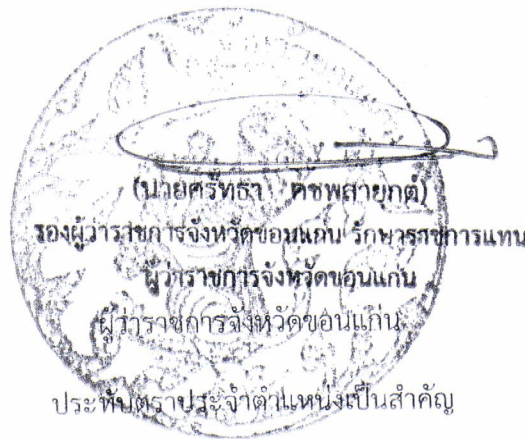 (นายศรัทธา คชพลายุกต์)
รองผู้ว่าราชการจังหวัดขอนแก่น รักษาราชการแทน
ผู้ว่าราชการจังหวัดขอนแก่น
ผู้ว่าราชการจังหวัดขอนแก่น
ประทับตราประจำตำแหน่งเป็นสำคัญ